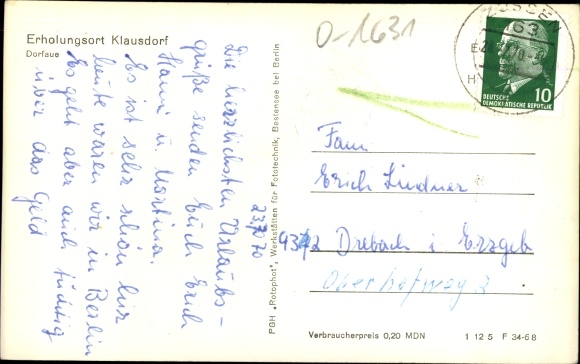 O-1631
Erholungsort Klausdorf
Dorfaue
Die herzlichsten Urlaubs-
grüße senden Euch Erich
Hanni u. Martina.
Es ist sehr schön hier
heute waren wir in Berlin
Es geht aber auch tüchtig
über das Geld
23.7.70
PGH „Rotophot“, Werkstätten für Fototechnik, Bestensee bei Berlin
ZOSSEN
63
10
DEUTSCHE
DEMOKRATISCHE REPUBLIK
Fam
Erich Lindner
9372 Drebach i Erzgeb
Oberhofweg 2
Verbraucherpreis 0,20 MDN
1 12 5 F 34-68